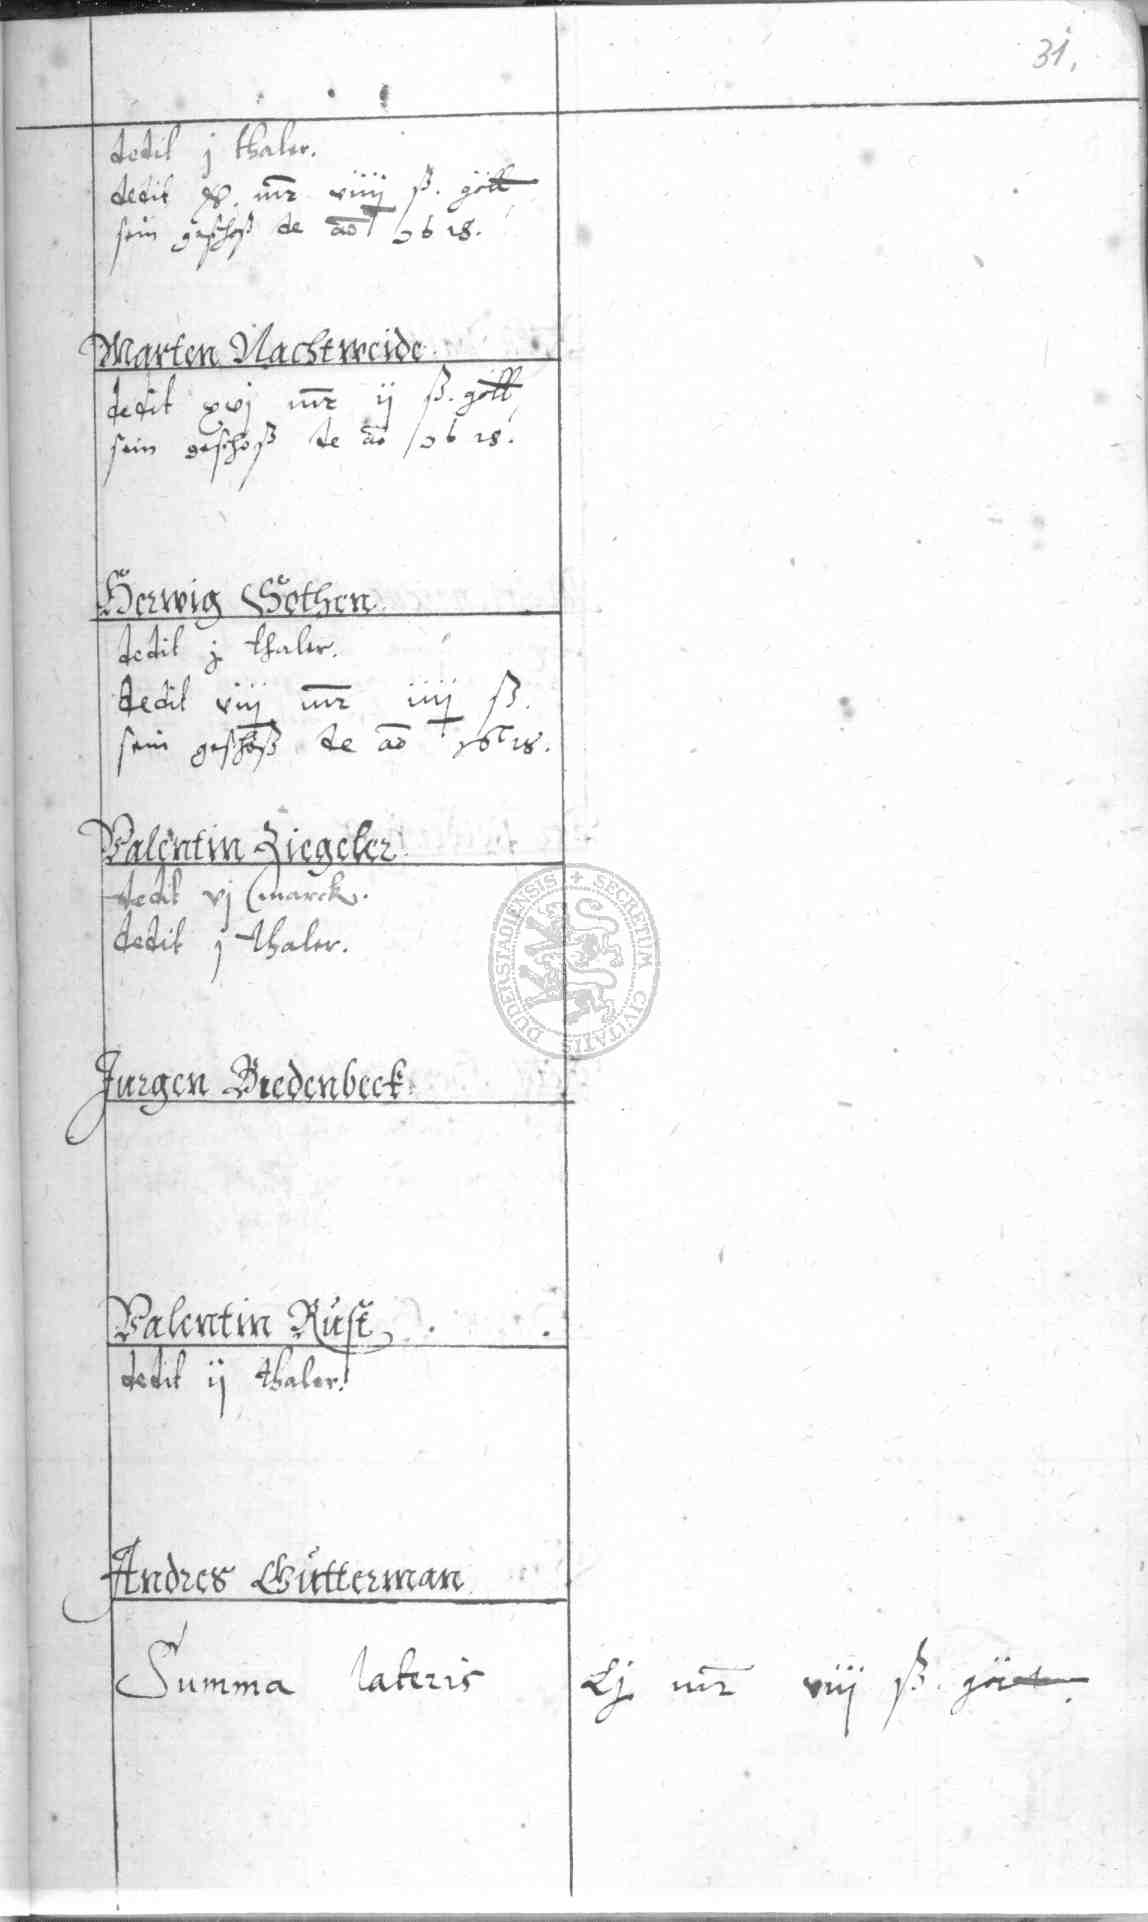 31.
dedit j thaler.
dedit x. mr viiij ß. gött
sein geschoß de ao 1618.
Marten Nachtweide
dedit xvj mr ij ß. gött
sein geschoß de ao 1618.
Herwig Gothen
dedit j thaler.
dedit viij mr iiij ß.
sein geschoß de ao 1618.
Valentin Ziegeler
dedit vj marck.
dedit j thaler.
DUDERSTADIENSIS + SECRETUM CIVITATIS
Jurgen Bredenbeck
Valentin Rust
dedit ij thaler.
Andres Gütterman
Summa lateris Lj mr viij ß.